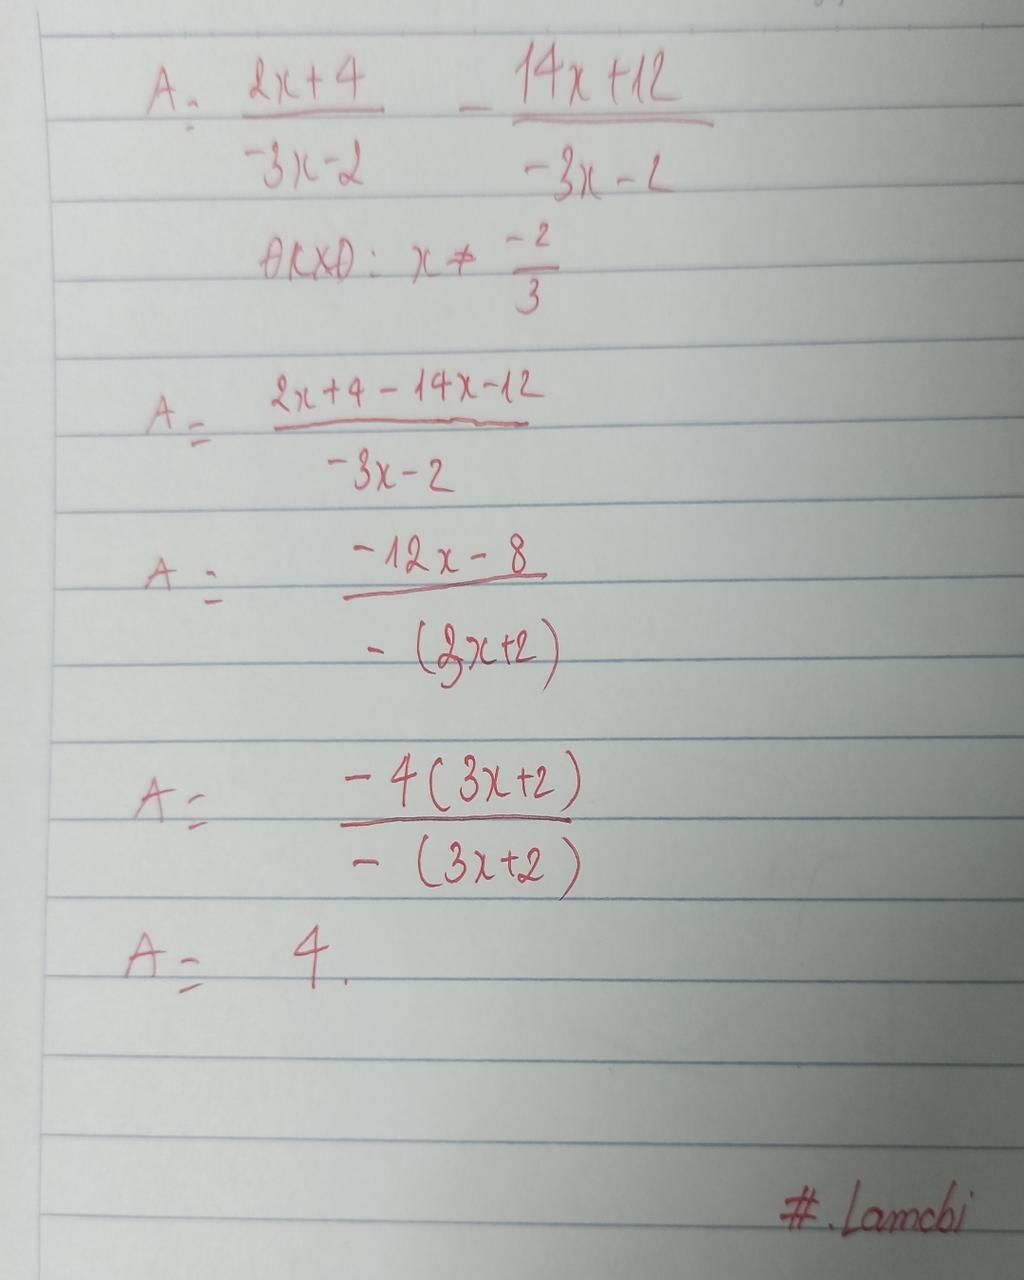 A = \frac{2x+4}{-3x-2} - \frac{14x+12}{-3x-2}
ĐKXĐ: x ≠ \frac{-2}{3}
A = \frac{2x+4-14x-12}{-3x-2}
A = \frac{-12x-8}{-(3x+2)}
A = \frac{-4(3x+2)}{-(3x+2)}
A = 4.
#.Lamchi